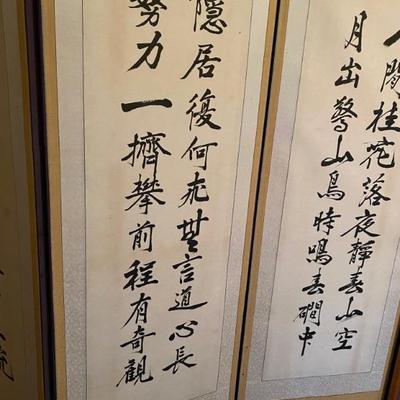 人間桂花落夜靜春山空
月出驚山鳥時鳴春磵中
隱居復何求無言道心長
努力一擠攀前程有奇觀